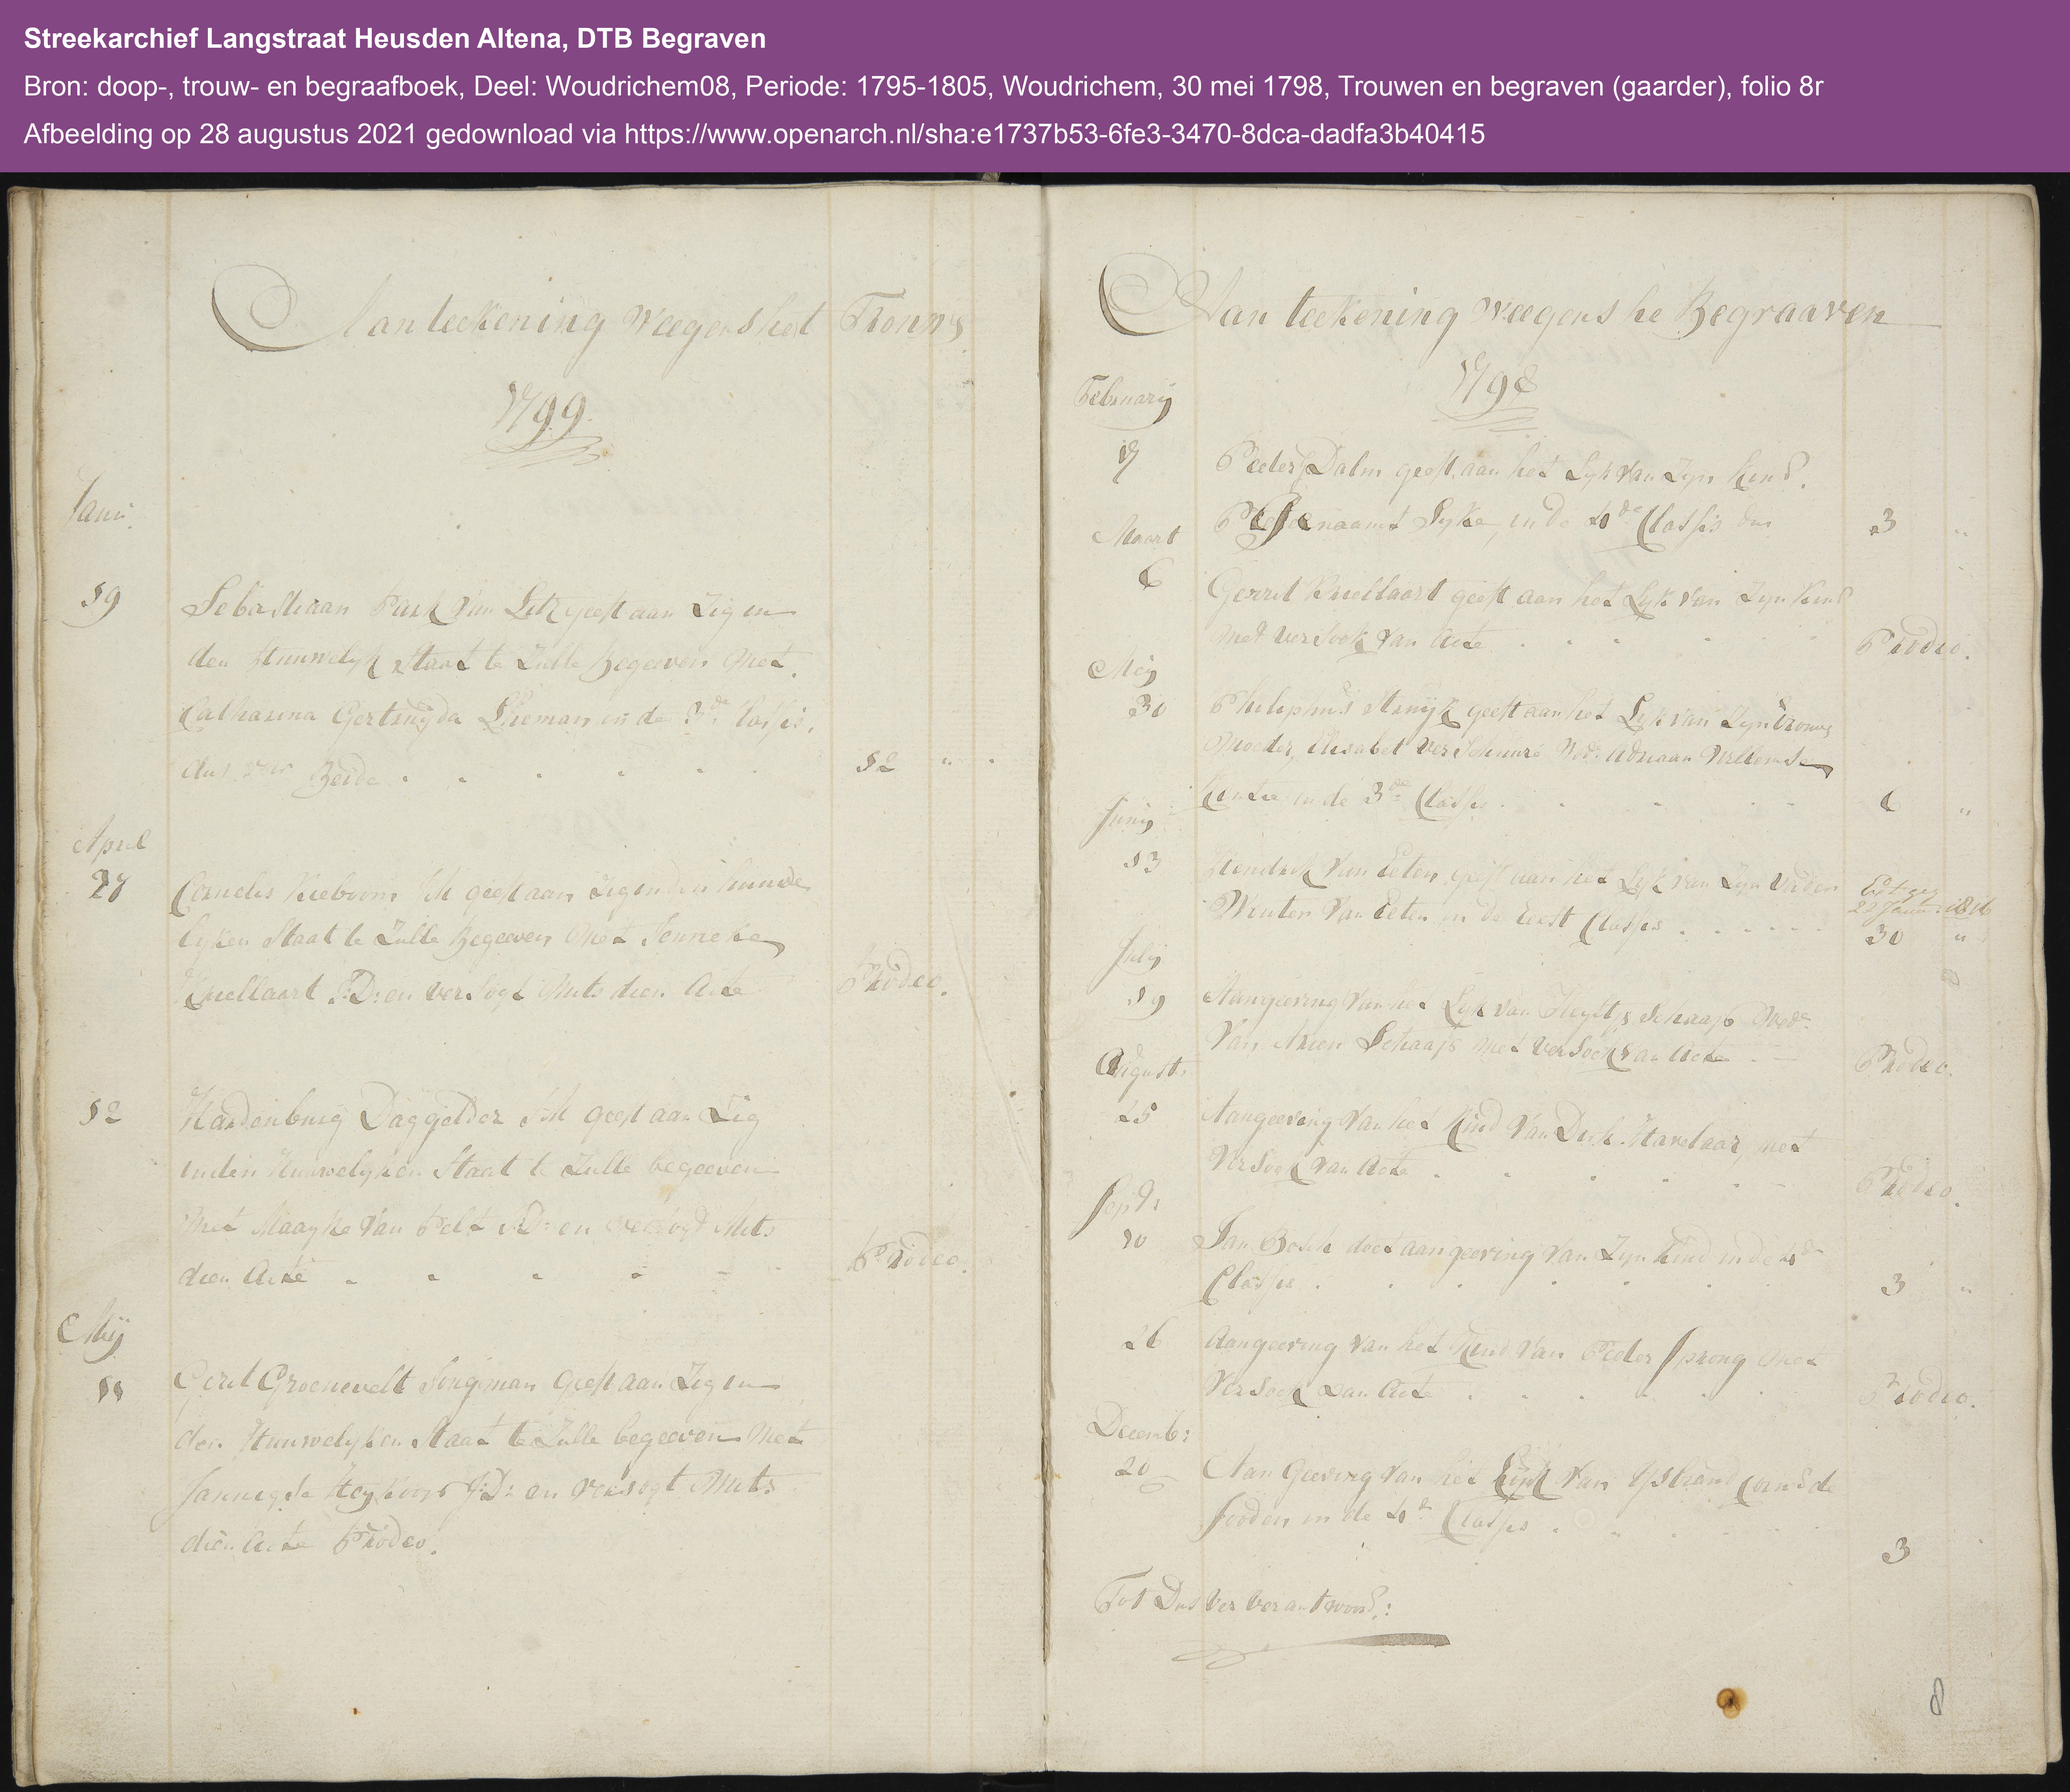 Streekarchief Langstraat Heusden Altena, DTB Begraven
Bron: doop-, trouw- en begraafboek, Deel: Woudrichem08, Periode: 1795-1805, Woudrichem, 30 mei 1798, Trouwen en begraven (gaarder), folio 8r
Afbeelding op 28 augustus 2021 gedownload via https://www.openarch.nl/sha:e1737b53-6fe3-3470-8dca-dadfa3b40415
Aanteekening weegens het Trouws
1799.
Janu:
19
Sebastiaan geeft aan Zig in
den Huuwelyk Staat te Zulle Begeeven Met
Catharina Gertruyda in de 3de Classis,
dus voor Beide 12 "
April
27
Cornelis Kieboom JM geeft aan Zig in den huuwe
lyken Staat te Zulle Begeeven Met Jenneke
Kuellaart J:D: en versogt Mits dien Acte Prodeo.
12
Hardenburg Daggelder JM geeft aan Zig
in den Huuwelyken Staat te Zulle begeeven
Met Maayke Van Pelt J:D: en versogt Mits
dien Acte Prodeo.
Mij
11
Gerit Groenevelt Jongman geeft aan Zig in
den Huuwelyken Staat te Zulle begeeven Met
J:D: en versogt Mits
dien Acte Prodeo.
Aanteekening weegens he Begraaven
1798
February
17
Peeter Dalm geeft aan het Lyk van Zyn Kind.
Lyke, in de 4de Classis dus 3 "
Maart
6
Gerrit Kuellaart geeft aan het Lyk van Zyn Kind
met versoek van Acte Prodeo.
Meij
30
Philiphus Struijk geeft aan het Lyk van Zyn Vrouws
Moeder, Elisabet Verschuure Wed: Adriaan Willemse
in de 3de Classis 6 "
Junij
13
Hendrik Van Eeten geeft aan het Lyk van Zyn Vader
Wouter Van Eeten in de Eerst Classis
22 Janu: 1816
30 "
Julij
19
Aangeeving van het Lyk van Schaap Wede
Van Arien Schaap met versoek van Acte Prodeo.
Augusts
25
Aangeeving van het Kind Van Dirk Havelaar, met
versoek van Acte Prodeo.
Sept:
10
Jan Bosch doet aangeeving Van Zyn Kind in de 4de
Classis 3 "
26
Aangeeving van het Kind Van Peeter Sprong Met
versoek van Acte Prodeo.
Decemb:
20
Aan Geeving van het Lijk Van
Jooden in de 4de Classis 3
Tot Dus Ver verantwoord:
8